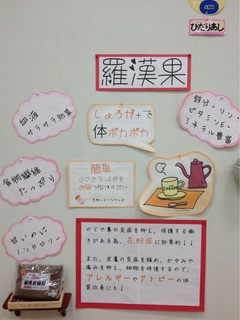 ひだりあし
羅漢果
血液
サラサラ効果
しょうが+で
体ポカポカ
鉄分・リン・
ビタミンE・
ミネラル豊富
食物繊維
たっぷり
簡単
甘いのに
ノンカロリー
のどや鼻の炎症を抑え、保護する働
きがある為、花粉症に効果的!!
また、皮膚の炎症を鎮め、かゆみや
痛みを抑え、細胞を修復するので、
アレルギーやアトピーの体
質改善にも!